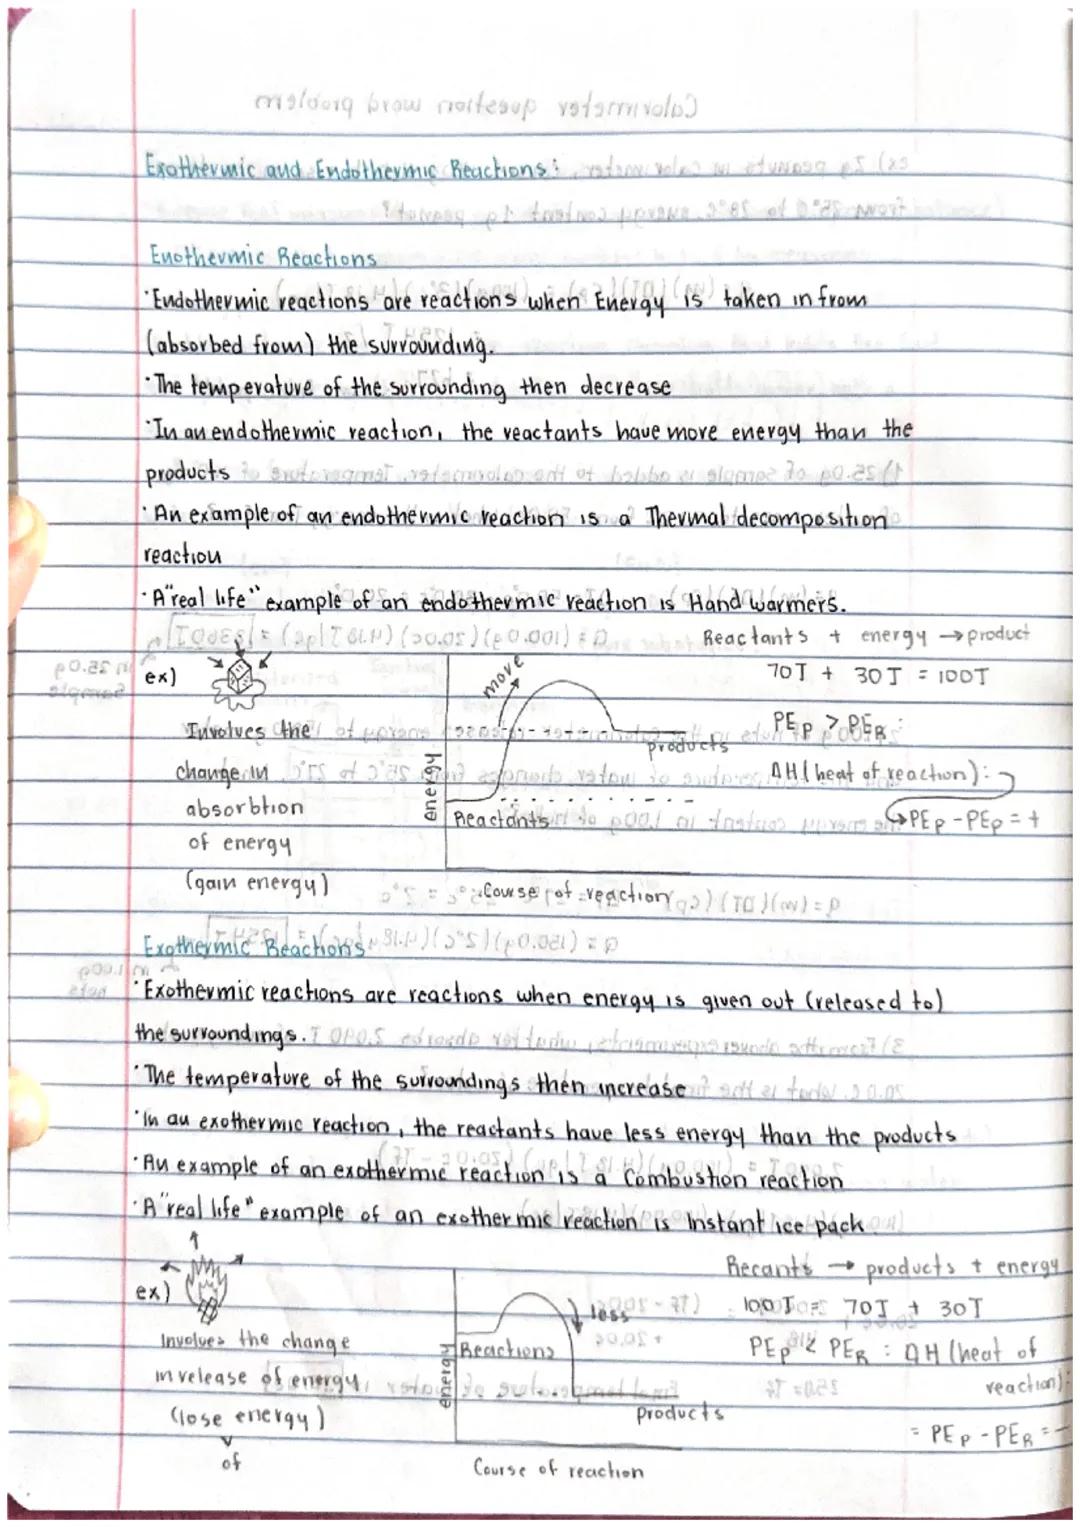 Exothermic and Endothermic Reactions:
Enothermic Reactions
·Endothermic reactions are reactions when Energy is taken in from
(absorbed from) the surrounding.
·The temperature of the surrounding then decrease
·In an endothermic reaction, the reactants have more energy than the
products
·An example of an endothermic reaction is a Thermal decomposition
reaction
·A "real life" example of an endothermic reaction is Hand warmers.
Reactants + energy → product
ex)
move
70J + 30J = 100J
Involves the
change in
absorbtion
of energy
(gain energy)
energy
products
Reactants
Course of reaction
PEp > PER :
ΔH (heat of reaction):
↳ PEp - PEp = +
Exothermic Reactions
·Exothermic reactions are reactions when energy is given out (released to)
the surroundings.
·The temperature of the surroundings then increase
·In an exothermic reaction, the reactants have less energy than the products
·An example of an exothermic reaction is a Combustion reaction
·A "real life" example of an exothermic reaction is Instant ice pack
Recants → products + energy
ex)
less
100J = 70J + 30J
Involves the change
in release of energy
(lose energy)
of
energy
Reactions
products
Course of reaction
PEp < PER : ΔH (heat of
reaction):
= PEp - PER = -